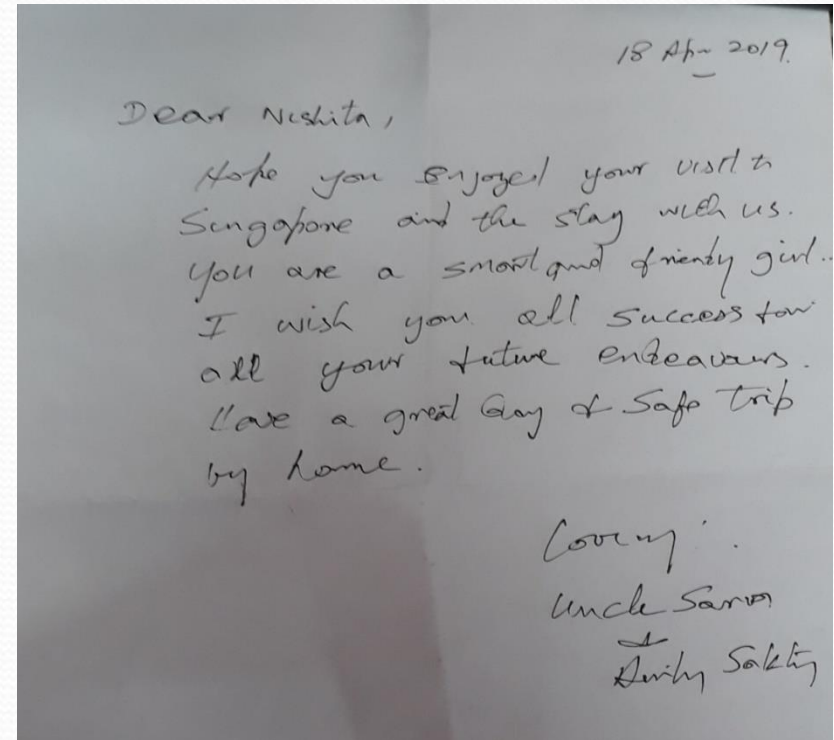 18 Apr 2019.
Dear Nishita,
Hope you enjoyed your visit to
Singapore and the stay with us.
You are a smart and friendly girl..
I wish you all success for
all your future endeavours.
Have a great day & Safe trip
by home.
Loving.
Uncle Sarva
&
Sakthy